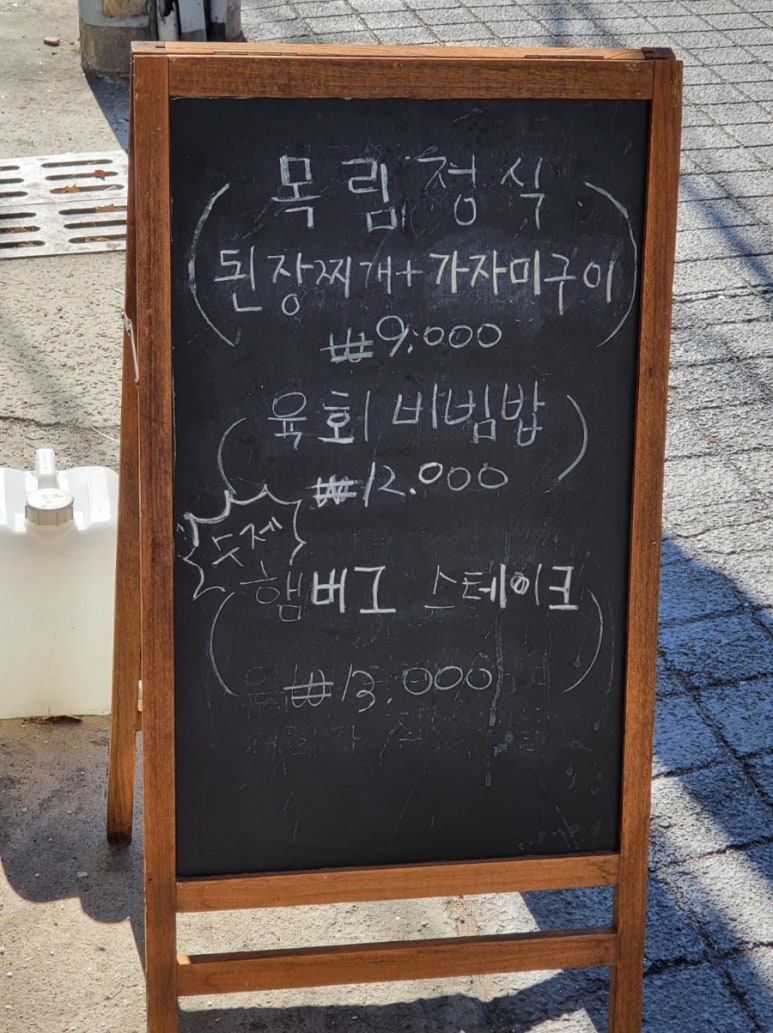 목림정식
된장찌개+가자미구이
₩9.000
육회비빔밥
₩12.000
수제
햄버그 스테이크
₩13.000